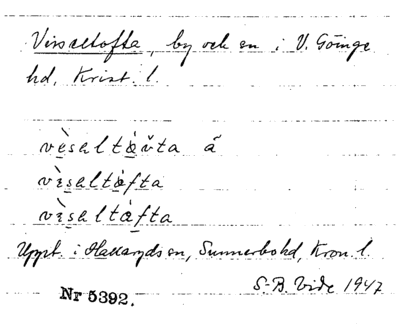 Visseltofta, by och sn i V. Göinge
hd, Krist. l.
vèsəltå̀v̌ta ä̃
vìsəltàfta
vìsəltåfta
Uppt. i Hallaryds sn, Sunnerbo hd, Kron. l.
S.-B. Vide 1947
Nr 5392.